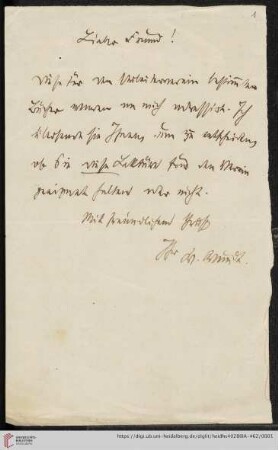 1
Lieber Freund!
Diese für den Arbeiterverein bestimmten
Bücher wurden an mich adressirt. Ich
übersende sie Ihnen, um zu entscheiden
ob Sie diese Lektüre für den Verein
geeignet halten oder nicht.
Mit freundlichem Gruß
Ihr W. Wundt.
UNIVERSITÄTS-
BIBLIOTHEK
HEIDELBERG
https://digi.ub.uni-heidelberg.de/diglit/heidhs4028BIA-462/0001